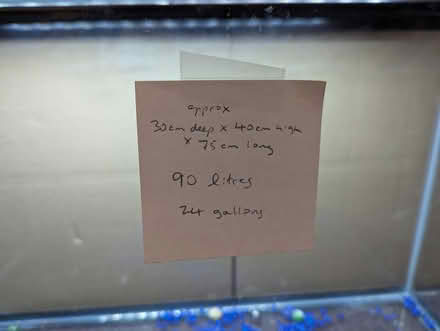 approx
30cm deep x 40cm high
x 75cm long
90 litres
24 gallons